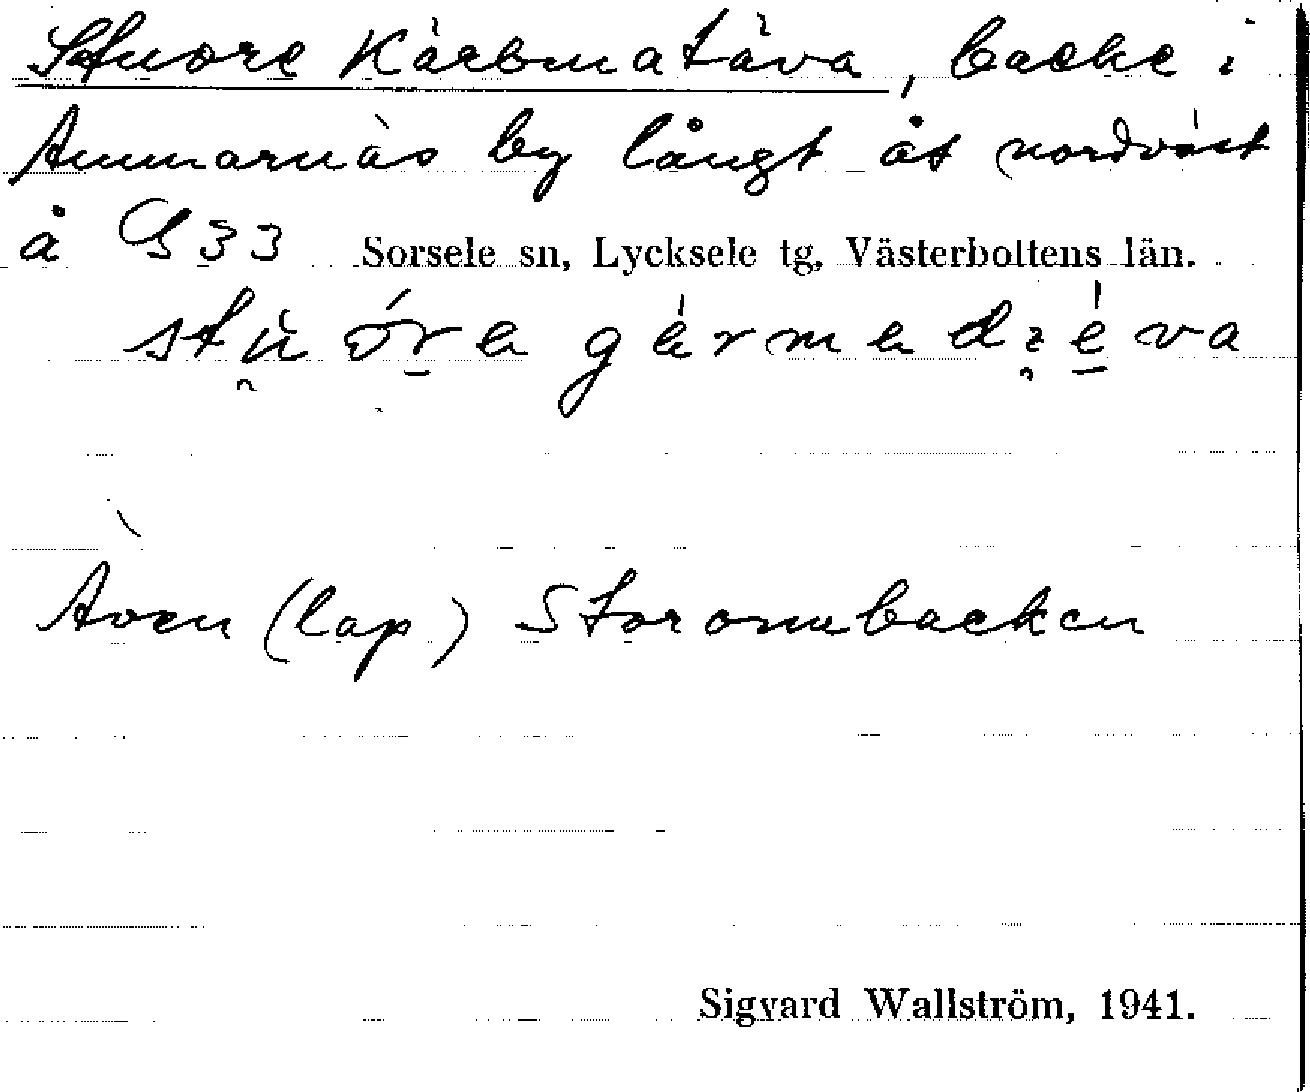 Stuore Kärbmatäva, backe i
Ammarnäs by långt åt nordväst
å G 33 Sorsele sn, Lycksele tg, Västerbottens län.
Även (lap) Stormbacken
Sigvard Wallström, 1941.